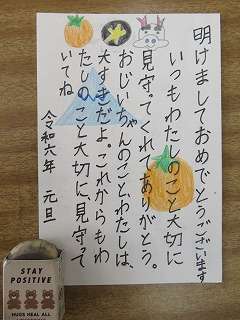 明けましておめでとうございます
いつもわたしのこと大切に
見守ってくれてありがとう。
おじいちゃんのことわたしは、
大すきだよ。これからもわ
たしのこと大切に、見守って
いてね
令和六年 元旦
STAY
POSITIVE
HUGS HEAL ALL